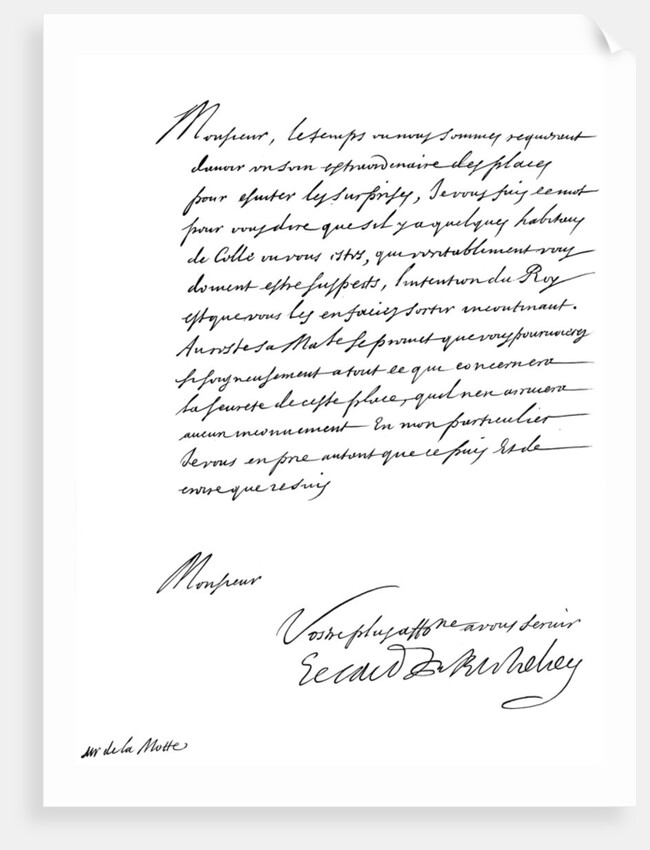 Monsieur, le temps ou nous sommes requerant
d'avoir un soin extraordinaire des places
pour esuiter les surprises, Je vous fais ce mot
pour vous dire que s'il y a quelques habitans
de Colle ou vous estes, que veritablement vous
doment estre suspects, l'intention du Roy
est que vous les en faciez sortir incontinant.
Au reste sa Ma.te se promet que vous pourvoierez
si soigneusement a tout ce que concernera
la seureté de ceste place, qu'il n'en arrivera
aucun inconvenient En mon particulier
Je vous en prie autant que ce puis Et de
croire que je suis
Monsieur
Vostre plus affo.ne a vous servir
Le Card. de Richelieu
sur de la Motte